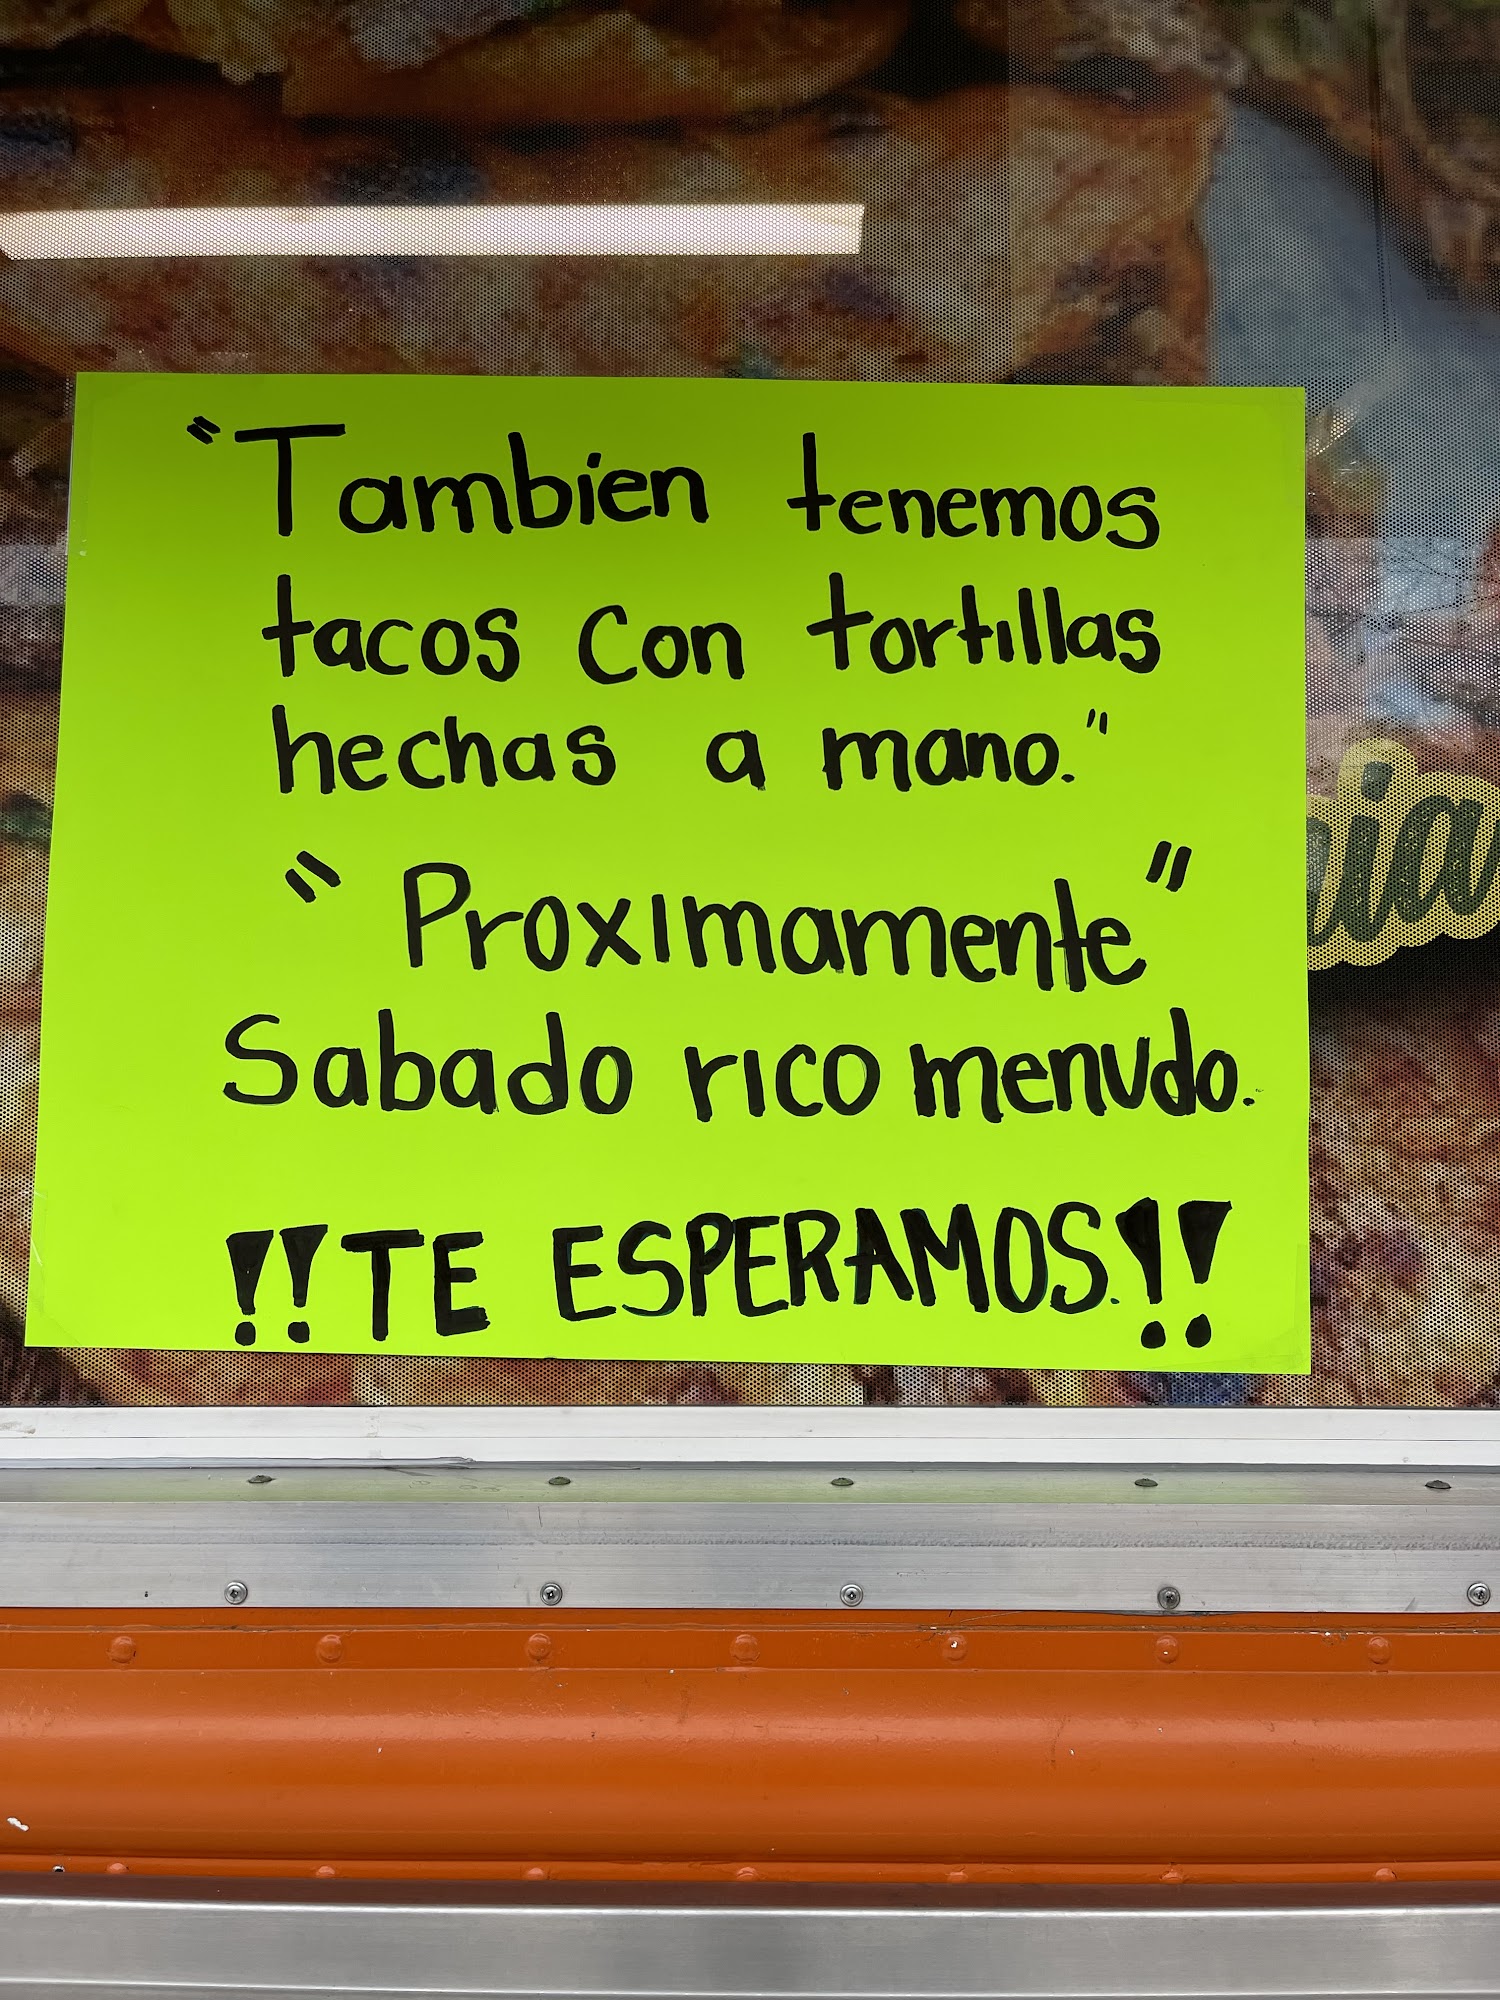 "Tambien tenemos
tacos con tortillas
hechas a mano."
"Proximamente"
Sabado rico menudo.
!!TE ESPERAMOS.!!